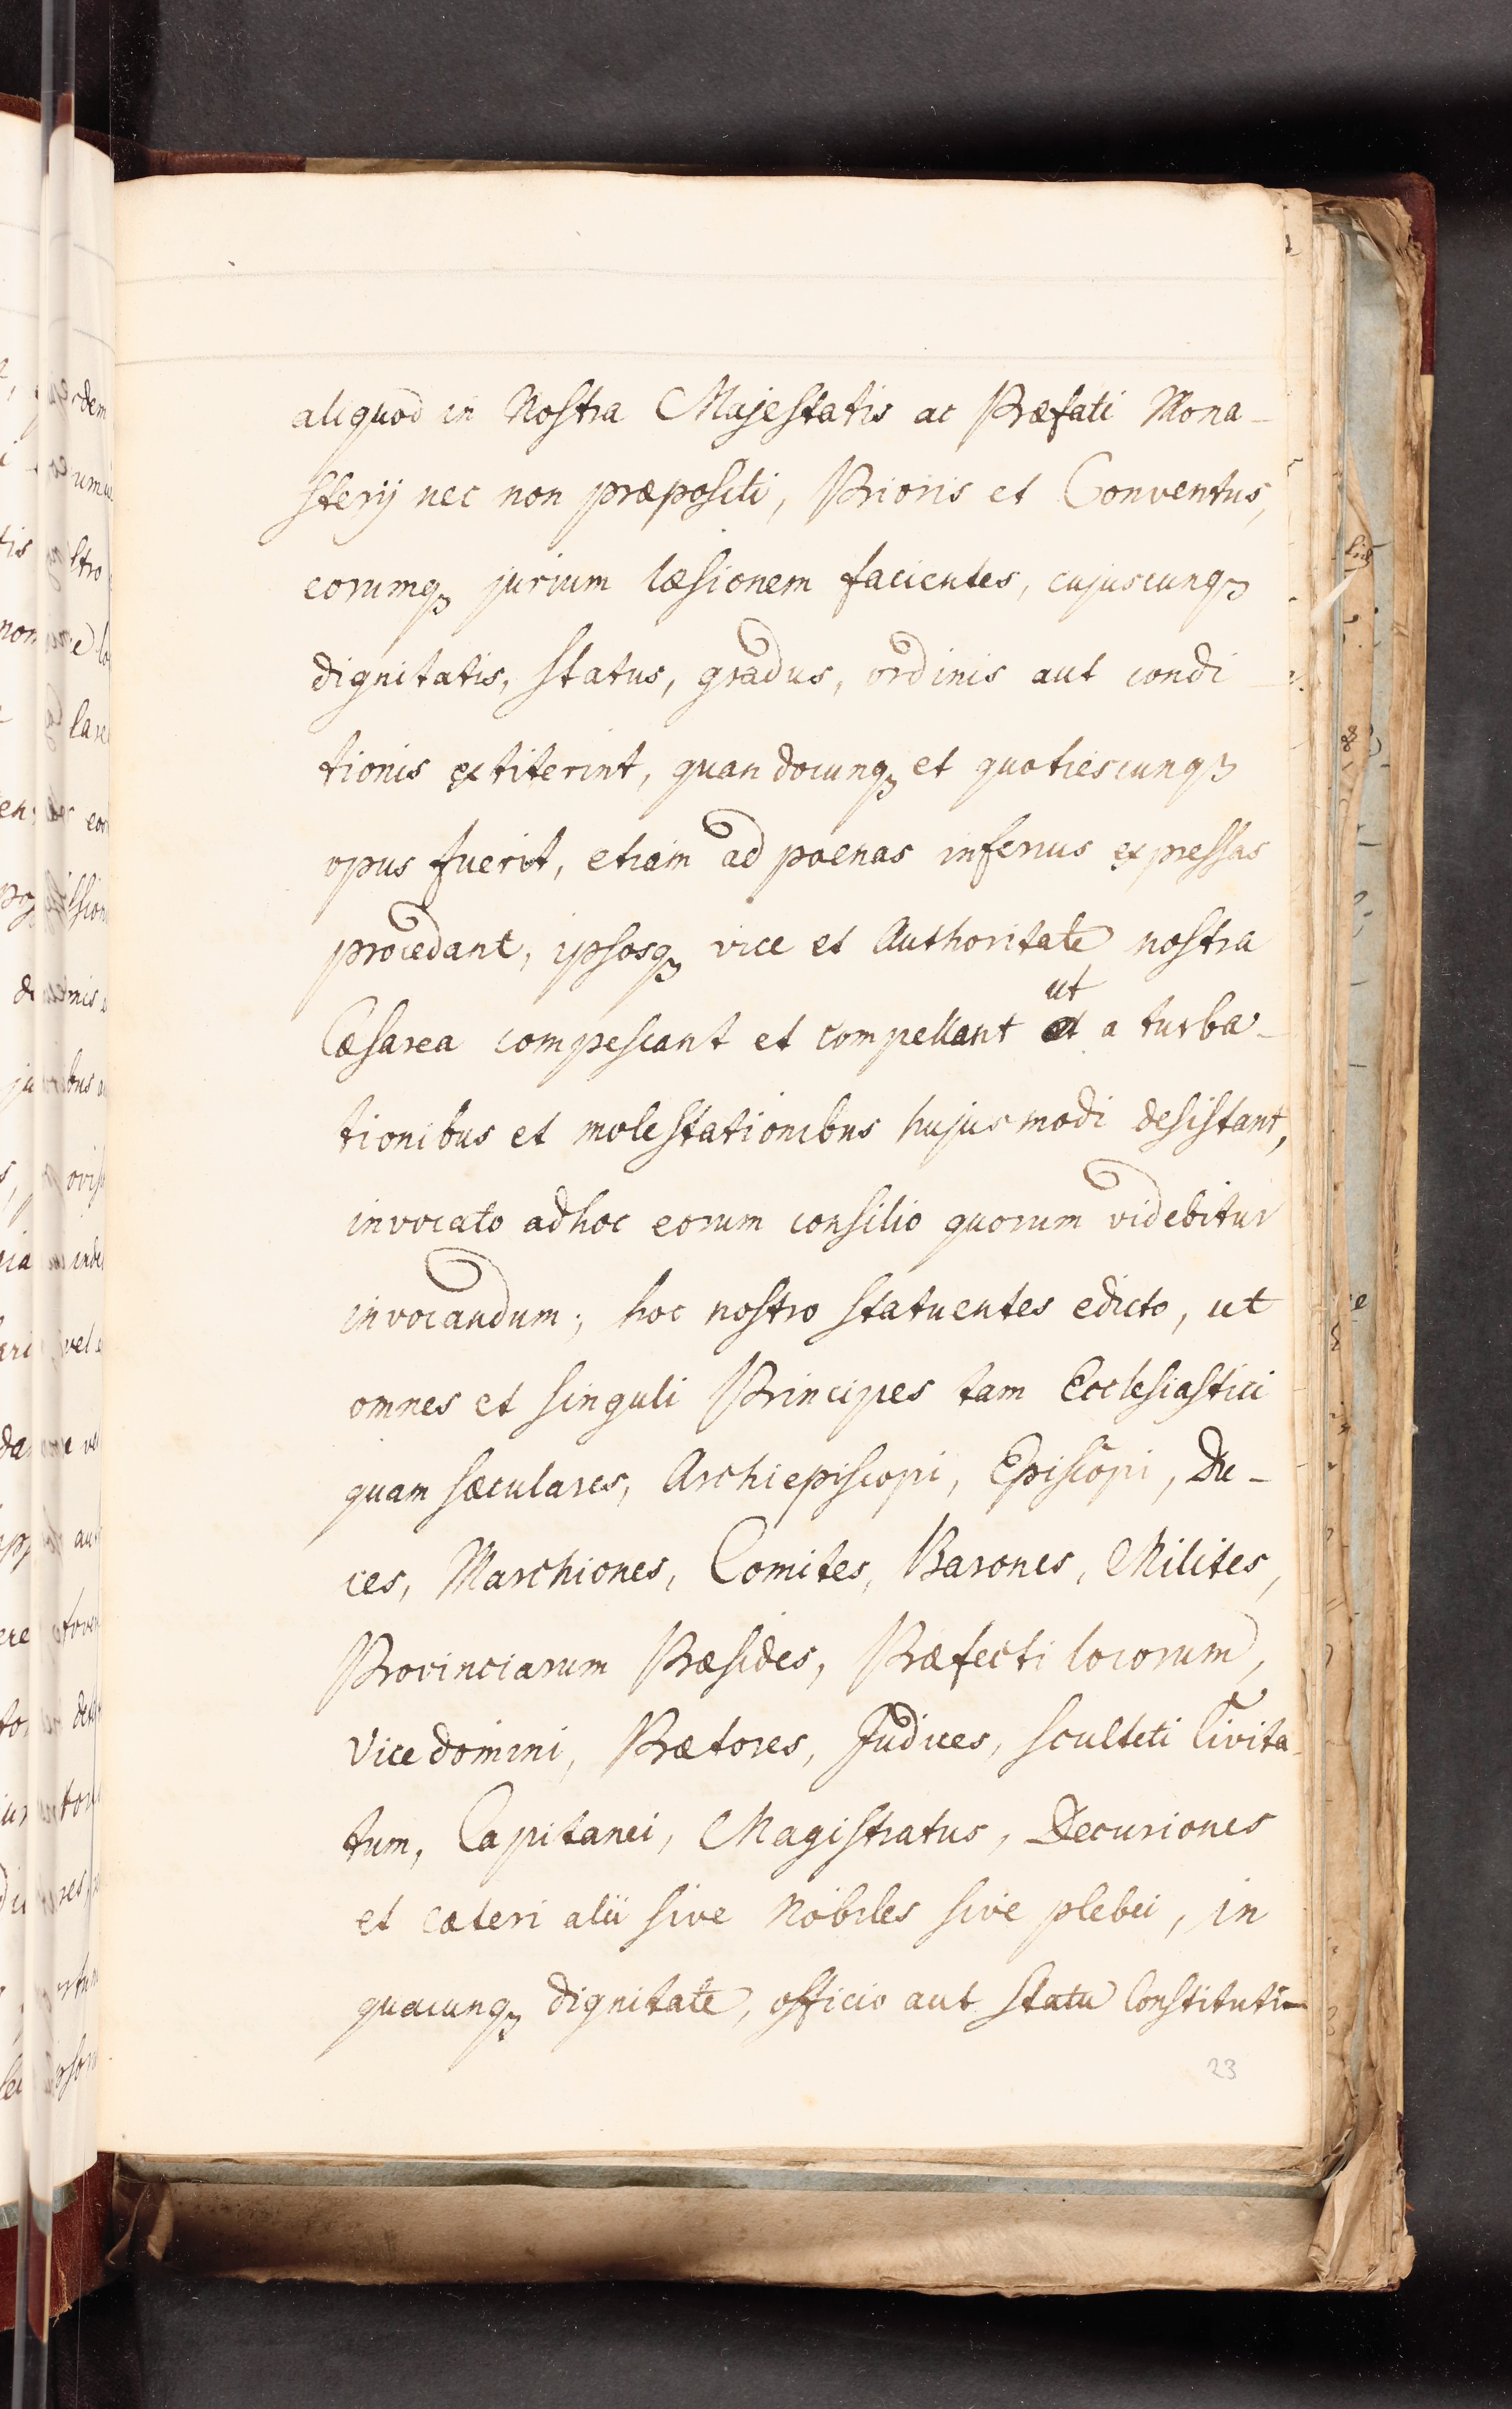 aliquod in Nostra Majestatis ac Præfati Mona-
sterij nec non præpositi, Prioris et Conventus,
eorumqꝫ jurium læsionem facientes, cujuscunqꝫ
dignitatis, status, gradus, ordinis aut condi-
tionis extiterint, quandocunqꝫ et quotiescunqꝫ
opus fuerit, etiam ad poenas inferius expressas
procedant, ipsosqꝫ vice et Authoritate nostra
ut
Cæsarea compescant et compellant et a turba-
tionibus et molestationibus hujusmodi desistant,
invocato adhoc eorum consilio quorum videbitur
invocandum; hoc nostro statuentes edicto, ut
omnes et singuli Principes tam Ecclesiastici
quam sæculares, Archiepiscopi, Episcopi, Du-
ces, Marchiones, Comites, Barones, Milites,
Provinciarum Præsides, Præfecti locorum,
Vicedomini, Prætores, Judices, sculteti Civita-
tum, Capitanei, Magistratus, Decuriones
et cæteri alii sive Nobiles sive plebei, in
quacunqꝫ dignitate, officio aut statu Constituti
23